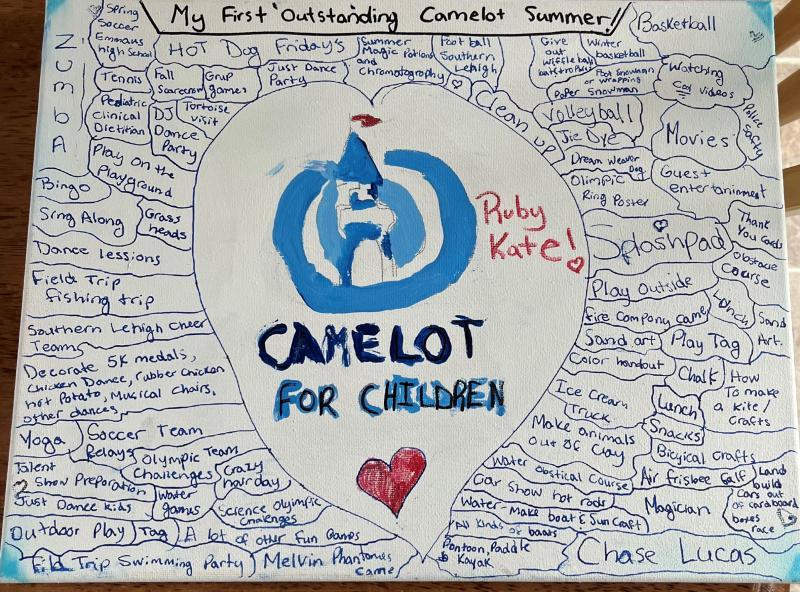 My First Outstanding Camelot Summer!
Spring
Soccer
Emmaus
high School
ZUMbA
HOT Dog
Friday's
Summer
Magic Potions
and
Chromatography
Foot ball
Southern
Lehigh
Give
out
Wiffle ball
Winter
basketball
Basketball
Foot Snowman
or wrapping
Paper Snowman
Watching
Cool Videos
Tennis
Fall
Scarecrow
Grup
games
Just Dance
Party
Clean up
Volleyball
Tie Dye
Movies
Police
Safty
Pediatric
Clinical
Dietitian
DJ
Dance
Party
Tortoise
Visit
Play on the
Playground
Dream Weaver
Dog
Olimpic
Ring Poster
Guest
entertaninment
Bingo
Sing Along
Grass
heads
Ruby
Kate!
Splashpad
Thank
You Cards
Obstacle
Course
Dance lessions
Field Trip
fishing trip
Play outside
Fire Company came
Lunch
Sand
Art.
Southern Lehigh Cheer
Team
CAMELOT
FOR CHILDREN
Sand art
Play Tag
Color handout
Chalk
How
To make
a kite/
Crafts
Decorate 5K medals,
Chicken Dance, rubber Chicken
hot Potato, Musical Chairs,
other dances
Ice Cream
Truck
Lunch
Snacks
Make animals
out of Clay
Bicyical Crafts
Yoga
Soccer Team
Relays
Olympic Team
Challenges
Crazy
hair day
Water obstical Course
Air frisbee Golf
Land
build
Cars out
of cardboard
boxes
race
Talent
Show Preparation
Just Dance kids
Water
games
Science Olyimpic
Challenges
Car Show hot rods
Water-Make boat & Sun Craft
Magician
Outdoor Play
Tag
A lot of other Fun Games
All Kinds of boats
Pontoon, Paddle
& Kayak
Chase Lucas
Fild Trip Swimming Party
Melvin Phantomes
came